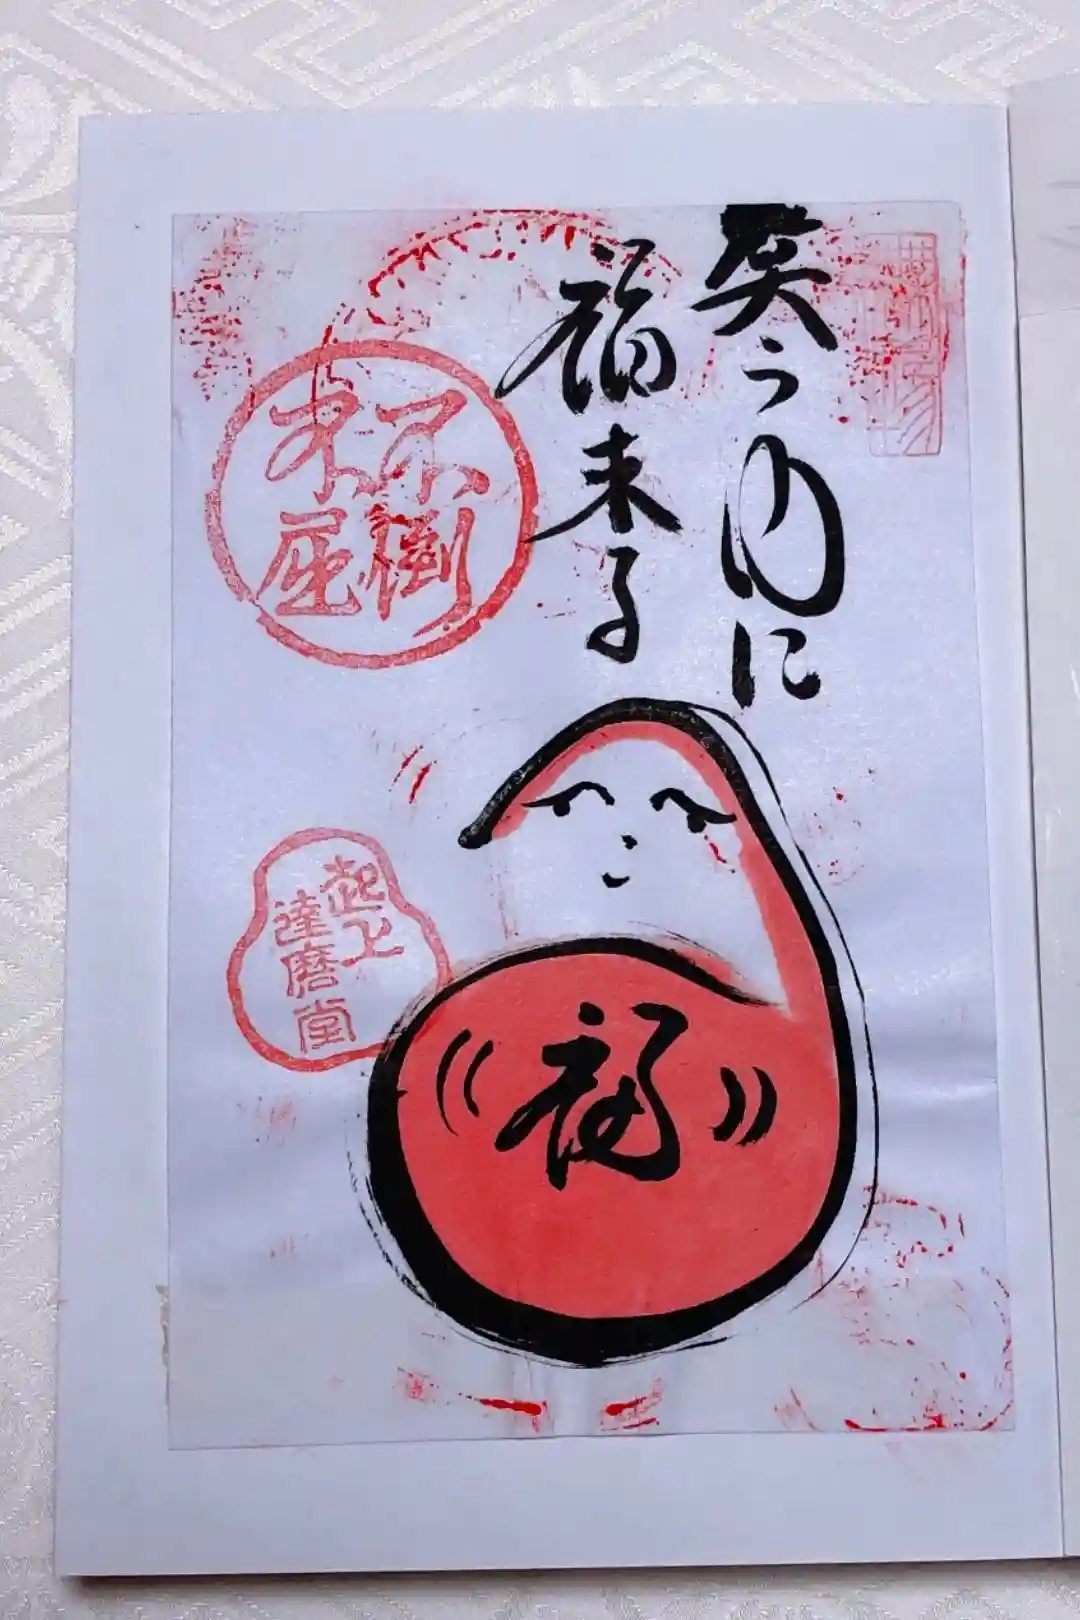 笑う門に
福来る
不倒
不屈
起上
達磨堂
福